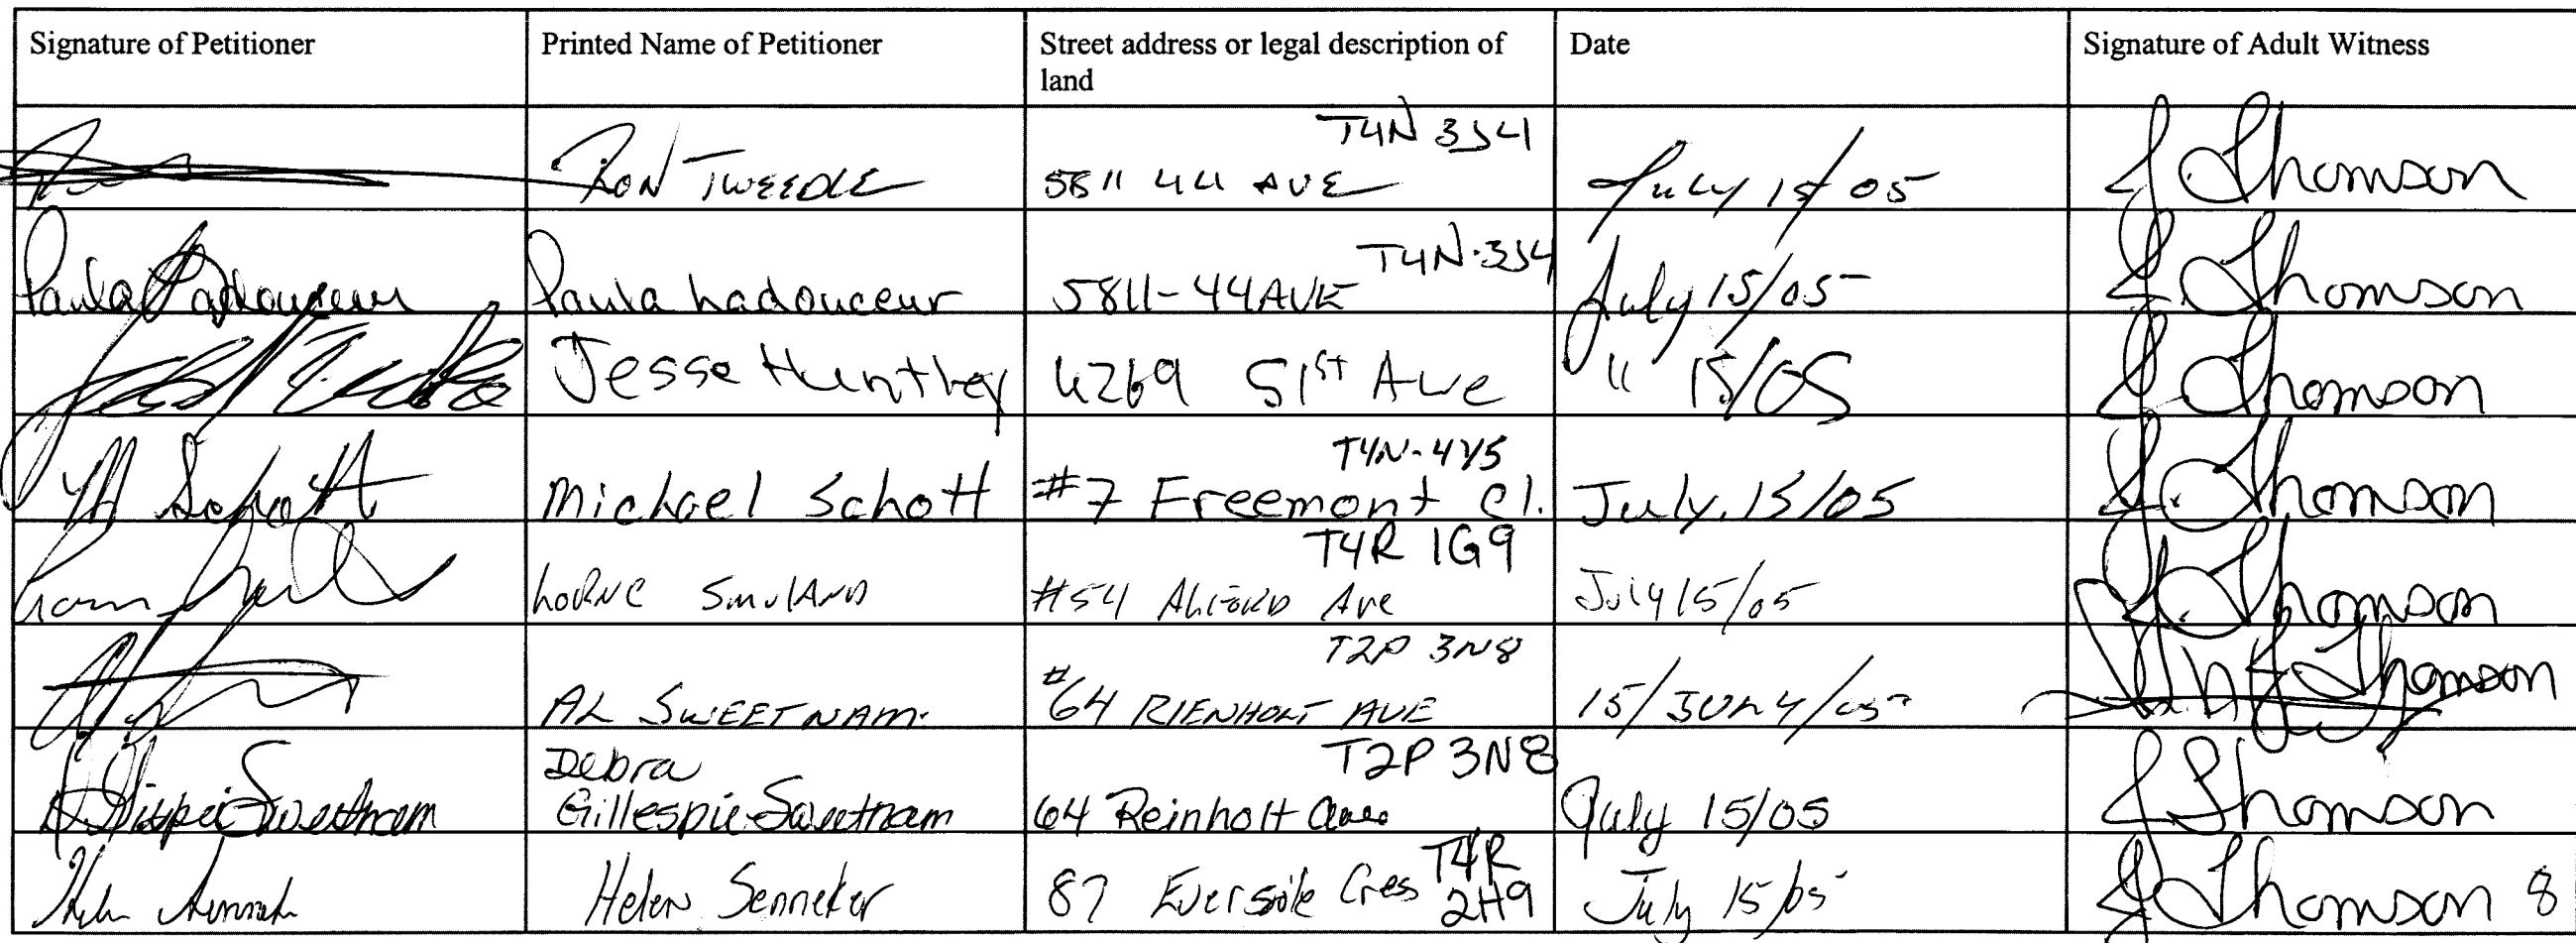 Signature of Petitioner
Printed Name of Petitioner
Street address or legal description of
land
Date
Signature of Adult Witness
RON TWEEDLE
T4N 3J4
5811 44 AVE
July 15/05
J Thomson
Paula Ladouceur
Paula Ladouceur
T4N-3J4
5811-44 AVE
July 15/05
J. Thomson
Jesse Hunthey
4269 51ST Ave
" 15/05
J Thomson
M Schott
Michael Schott
T4N-4Y5
#7 Freemont Cl.
July. 15/05
J. Thomson
LORNE
T4R 1G9
#54 Ave
July 15/05
J. Thomson
AL SWEETNAM.
T2P 3N8
#64 RIENHOLT AVE
15/JULY/05
J Thomson
Debra
Gillespie-Sweetnam
T2P 3N8
64 Reinholt Ave
July 15/05
J Thomson
Helen Senneker
T4R
87 Eversole Cres 2H9
July 15/05
J Thomson 8